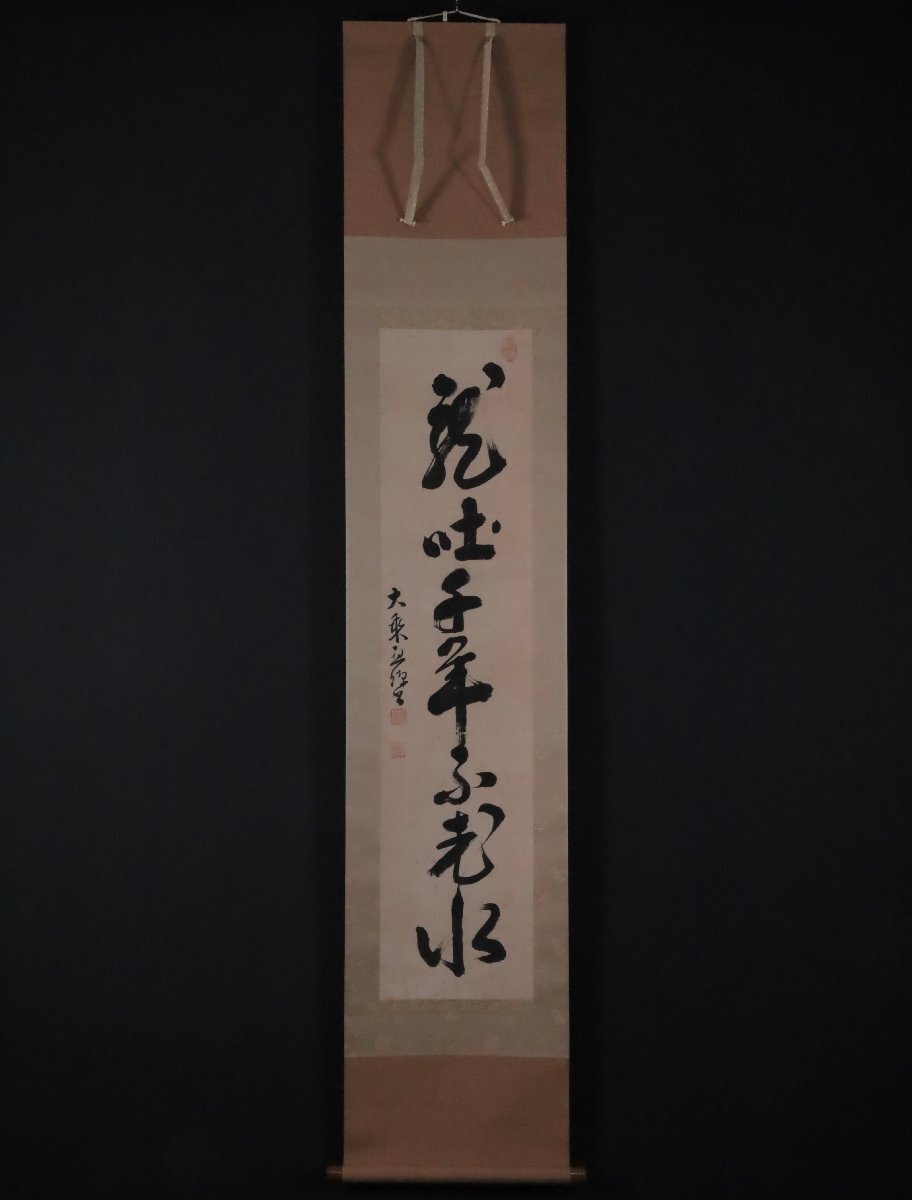 龍吐千年不老水
大乗